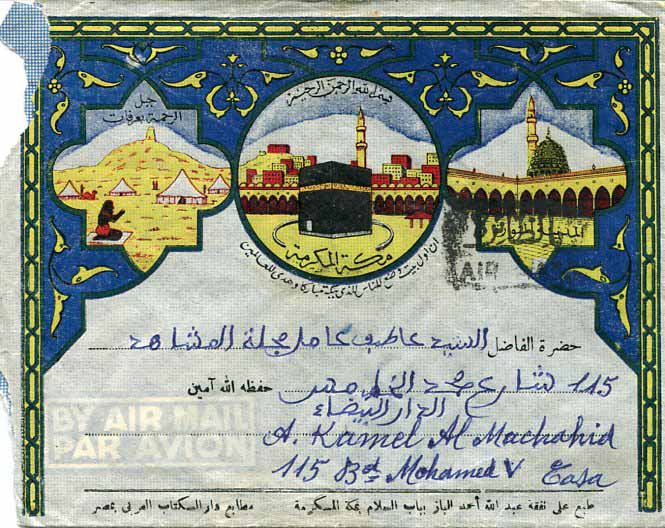 بسم الله الرحمن الرحيم
جبل
الرحمة بعرفات
مكة المكرمة
ان اول بيت وضع للناس للذي ببكة مباركا وهدى للعالمين
المدينة المنورة
AIR
حضرة الفاضل السيد عاطف كامل مجلة المشاهد
115 شارع محمد الخامس حفظه الله آمين
الدار البيضاء
BY AIR MAIL
PAR AVION
A. Kamel Al Machahid
115 Bd Mohamed V Casa
طبع على نفقة عبد الله أحمد الباز بباب السلام بمكة المكرمة مطابع دار الكتاب العربى بمصر